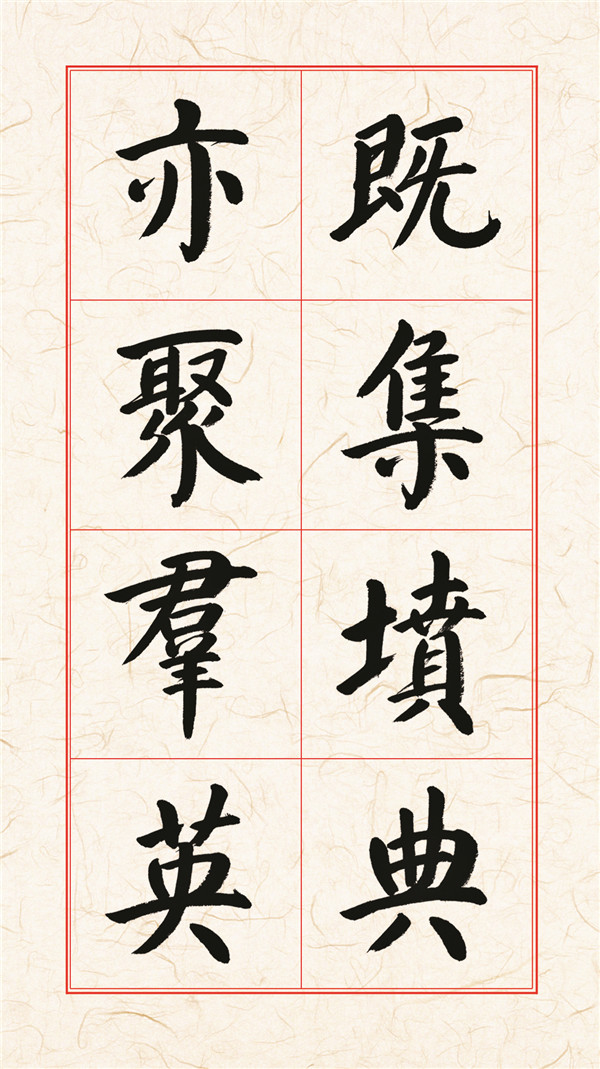 既集墳典
亦聚羣英